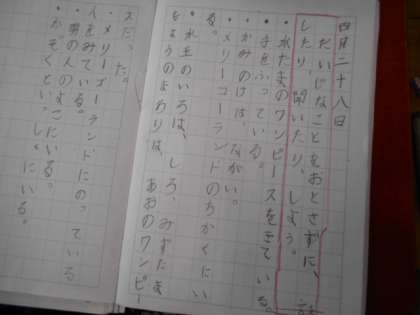 四月二十八日
だいじなことをおとさずに、話
したり、聞いたり、しよう。
・水たまのワンピースをきている。
・手をふっている。
・かみのけは、ながい。
・メリーゴーランドのちかくにい
る。
・水玉のいろは、しろ、みずたま
もようのまわりは、あおのワンピー
スだった。
・メリーゴーランドにのっている
人をみている。
・男の人のよこにいる。
・かぞくといっしょにいる。